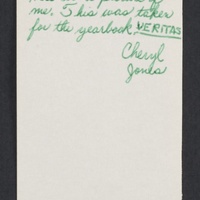 me. This was taken
for the yearbook VERITAS
Cheryl
Jones